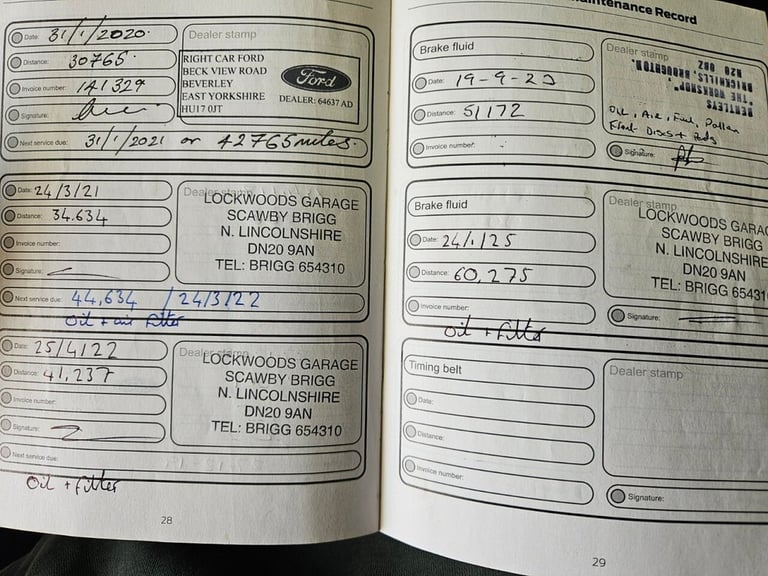 Date: 31/1/2020.
Distance: 30765.
Invoice number: 141329
Signature:
Next service due: 31/1/2021 or 42765 miles.
Dealer stamp
RIGHT CAR FORD
BECK VIEW ROAD
BEVERLEY
EAST YORKSHIRE
HU17 0JT
Ford
DEALER: 64637 AD
Date: 24/3/21
Distance: 34.634
Invoice number:
Signature:
Next service due: 44,634 / 24/3/22
Oil + air filter
Dealer stamp
LOCKWOODS GARAGE
SCAWBY BRIGG
N. LINCOLNSHIRE
DN20 9AN
TEL: BRIGG 654310
Date: 25/4/22
Distance: 41,237
Invoice number:
Signature:
Next service due:
Oil + filter
Dealer stamp
LOCKWOODS GARAGE
SCAWBY BRIGG
N. LINCOLNSHIRE
DN20 9AN
TEL: BRIGG 654310
28
Maintenance Record
Brake fluid
Date: 19-9-23
Distance: 51172
Invoice number:
Dealer stamp
BENTLEYS
"THE WORKSHOP"
BRICKHILLS, BROUGHTON.
Oil, Air, Fuel, Pollen
Front Discs + Pads
Signature:
Brake fluid
Date: 24/1/25
Distance: 60,275
Invoice number:
Oil + filter
Dealer stamp
LOCKWOODS GARAG
SCAWBY BRIGG
N. LINCOLNSHIRE
DN20 9AN
TEL: BRIGG 65431
Signature:
Timing belt
Date:
Distance:
Invoice number:
Dealer stamp
Signature:
29